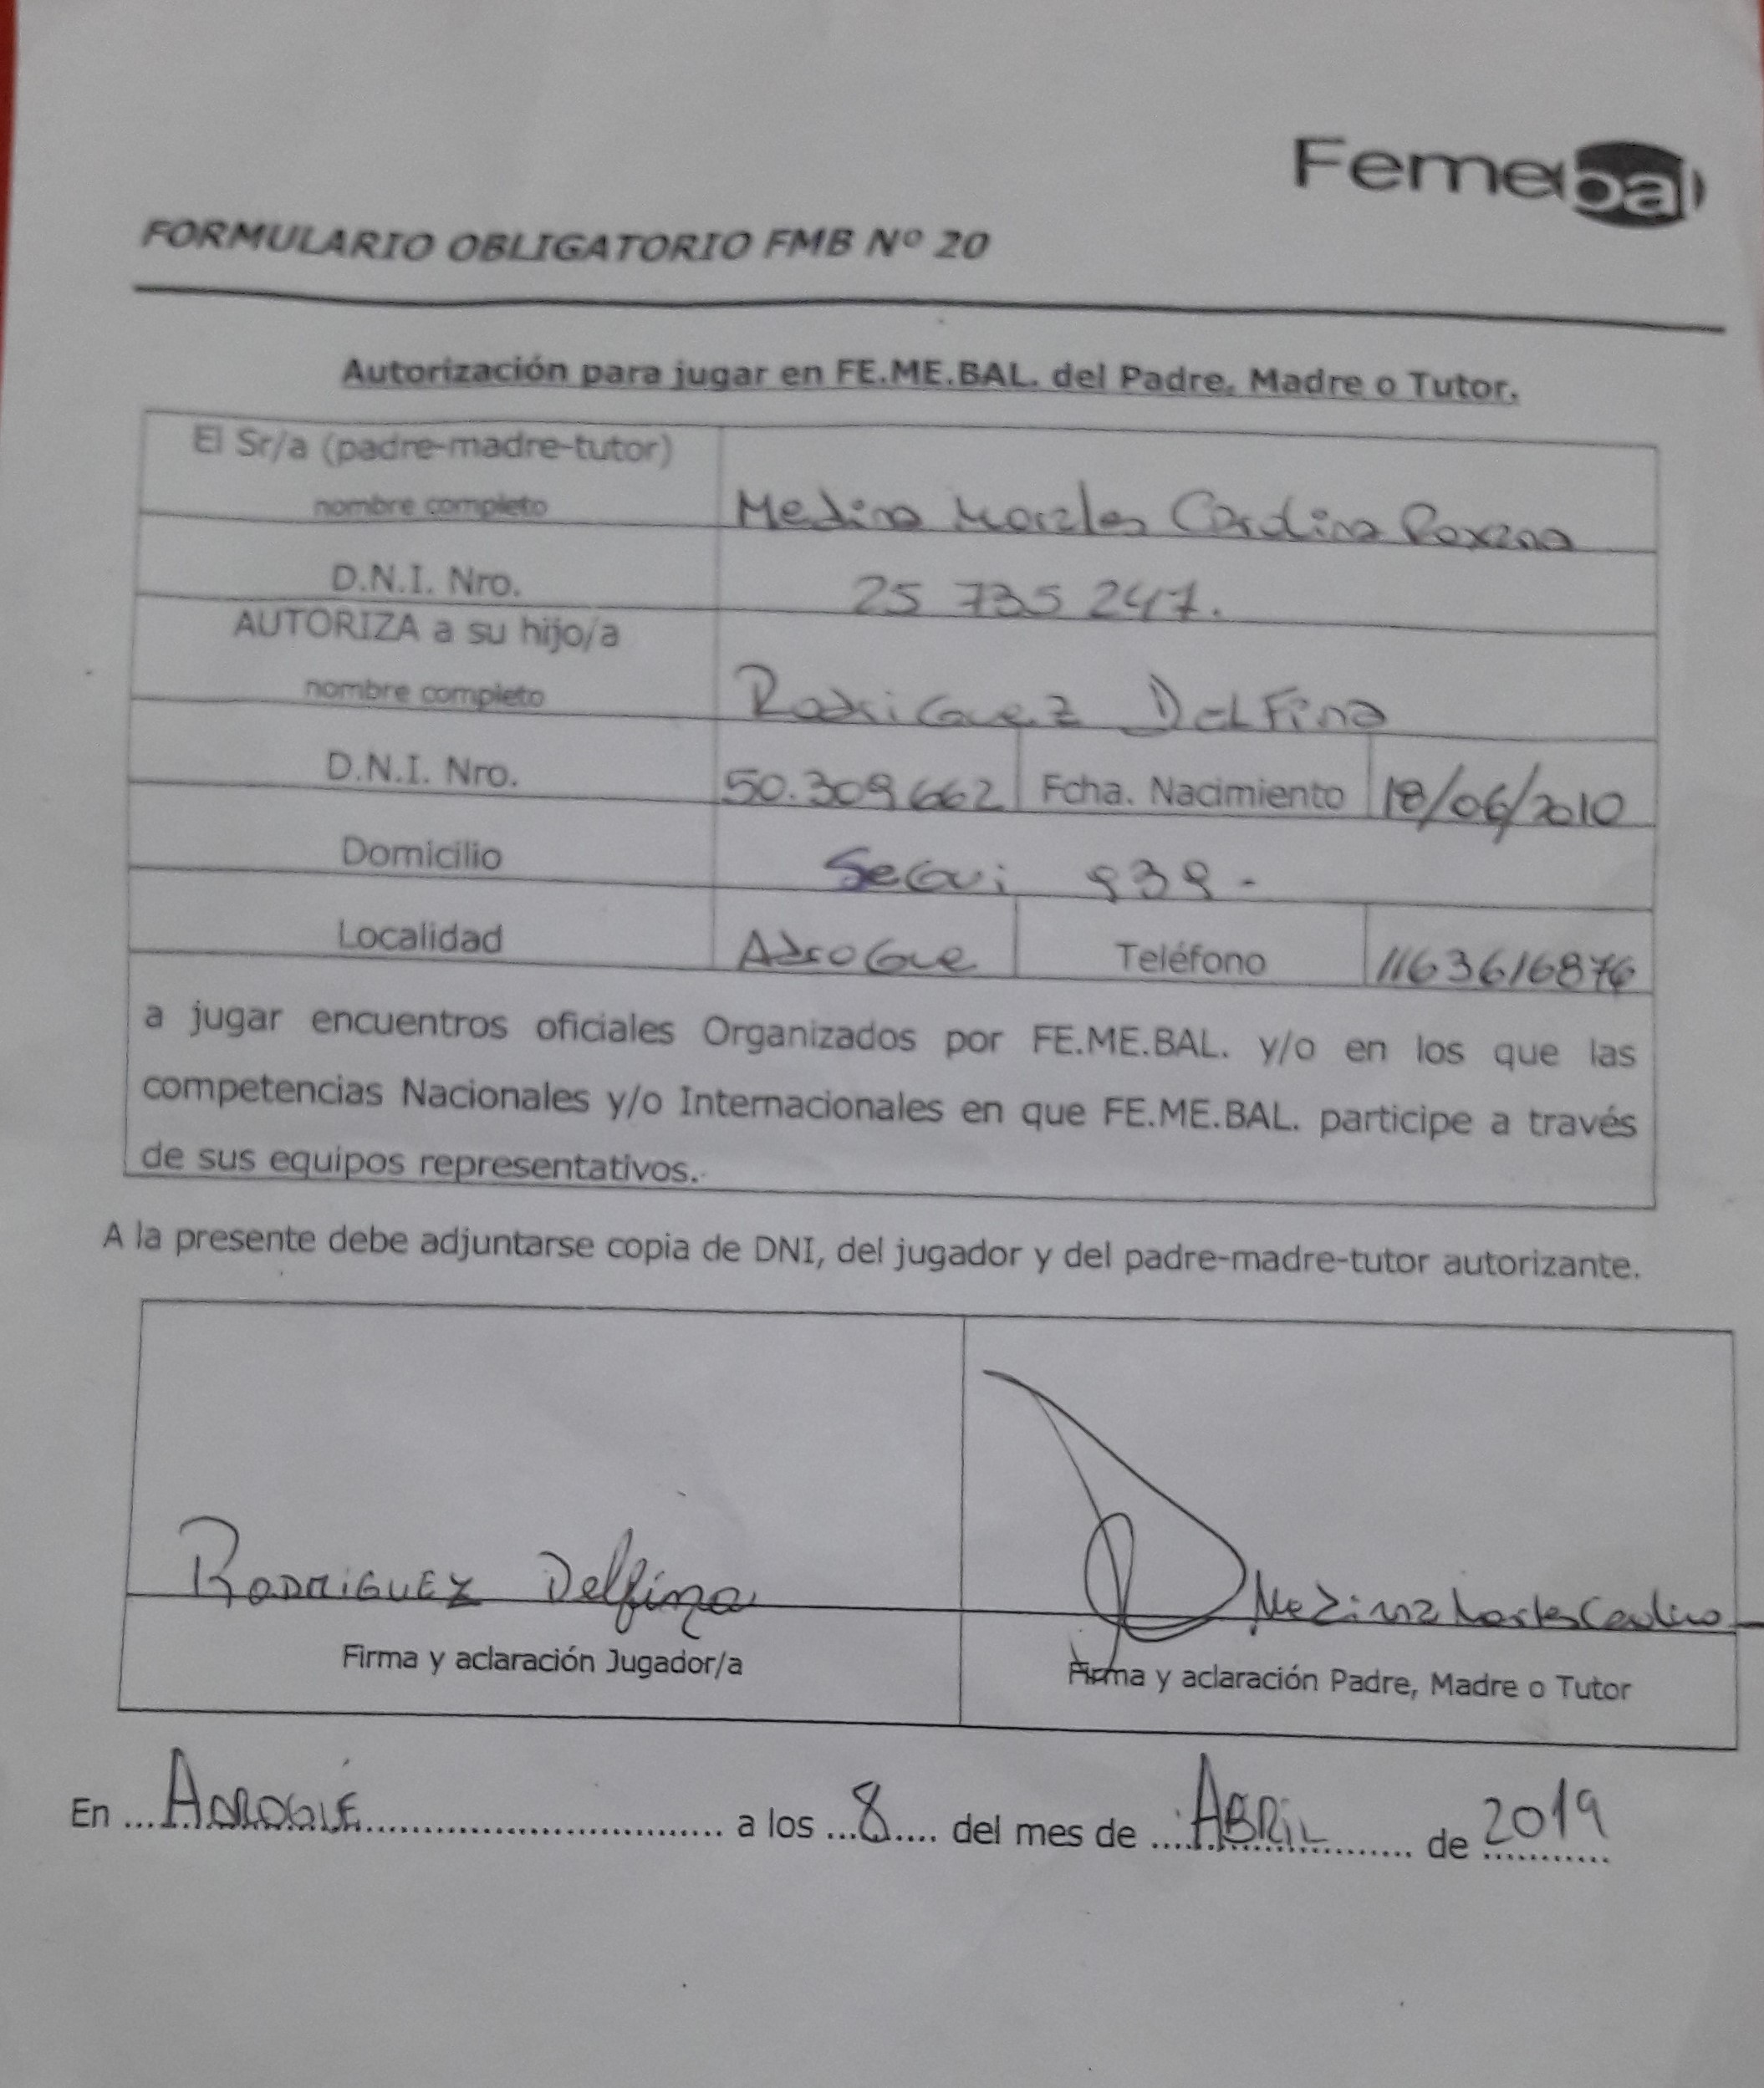 Femebal
FORMULARIO OBLIGATORIO FMB Nº 20
Autorización para jugar en FE.ME.BAL. del Padre, Madre o Tutor.
El Sr/a (padre-madre-tutor)
nombre completo
Medina Morales Carolina Roxana
D.N.I. Nro.
25 735 247.
AUTORIZA a su hijo/a
nombre completo
Rodriguez Delfina
D.N.I. Nro. 50.309.662 Fcha. Nacimiento 18/06/2010
Domicilio Segui 939 -
Localidad Adrogue Teléfono 1163616876
a jugar encuentros oficiales Organizados por FE.ME.BAL. y/o en los que las
competencias Nacionales y/o Internacionales en que FE.ME.BAL. participe a través
de sus equipos representativos.
A la presente debe adjuntarse copia de DNI, del jugador y del padre-madre-tutor autorizante.
Rodriguez Delfina
Medina Morales Carolina
Firma y aclaración Jugador/a
Firma y aclaración Padre, Madre o Tutor
En ...Adrogué........ a los ...8.... del mes de ....Abril....... de 2019